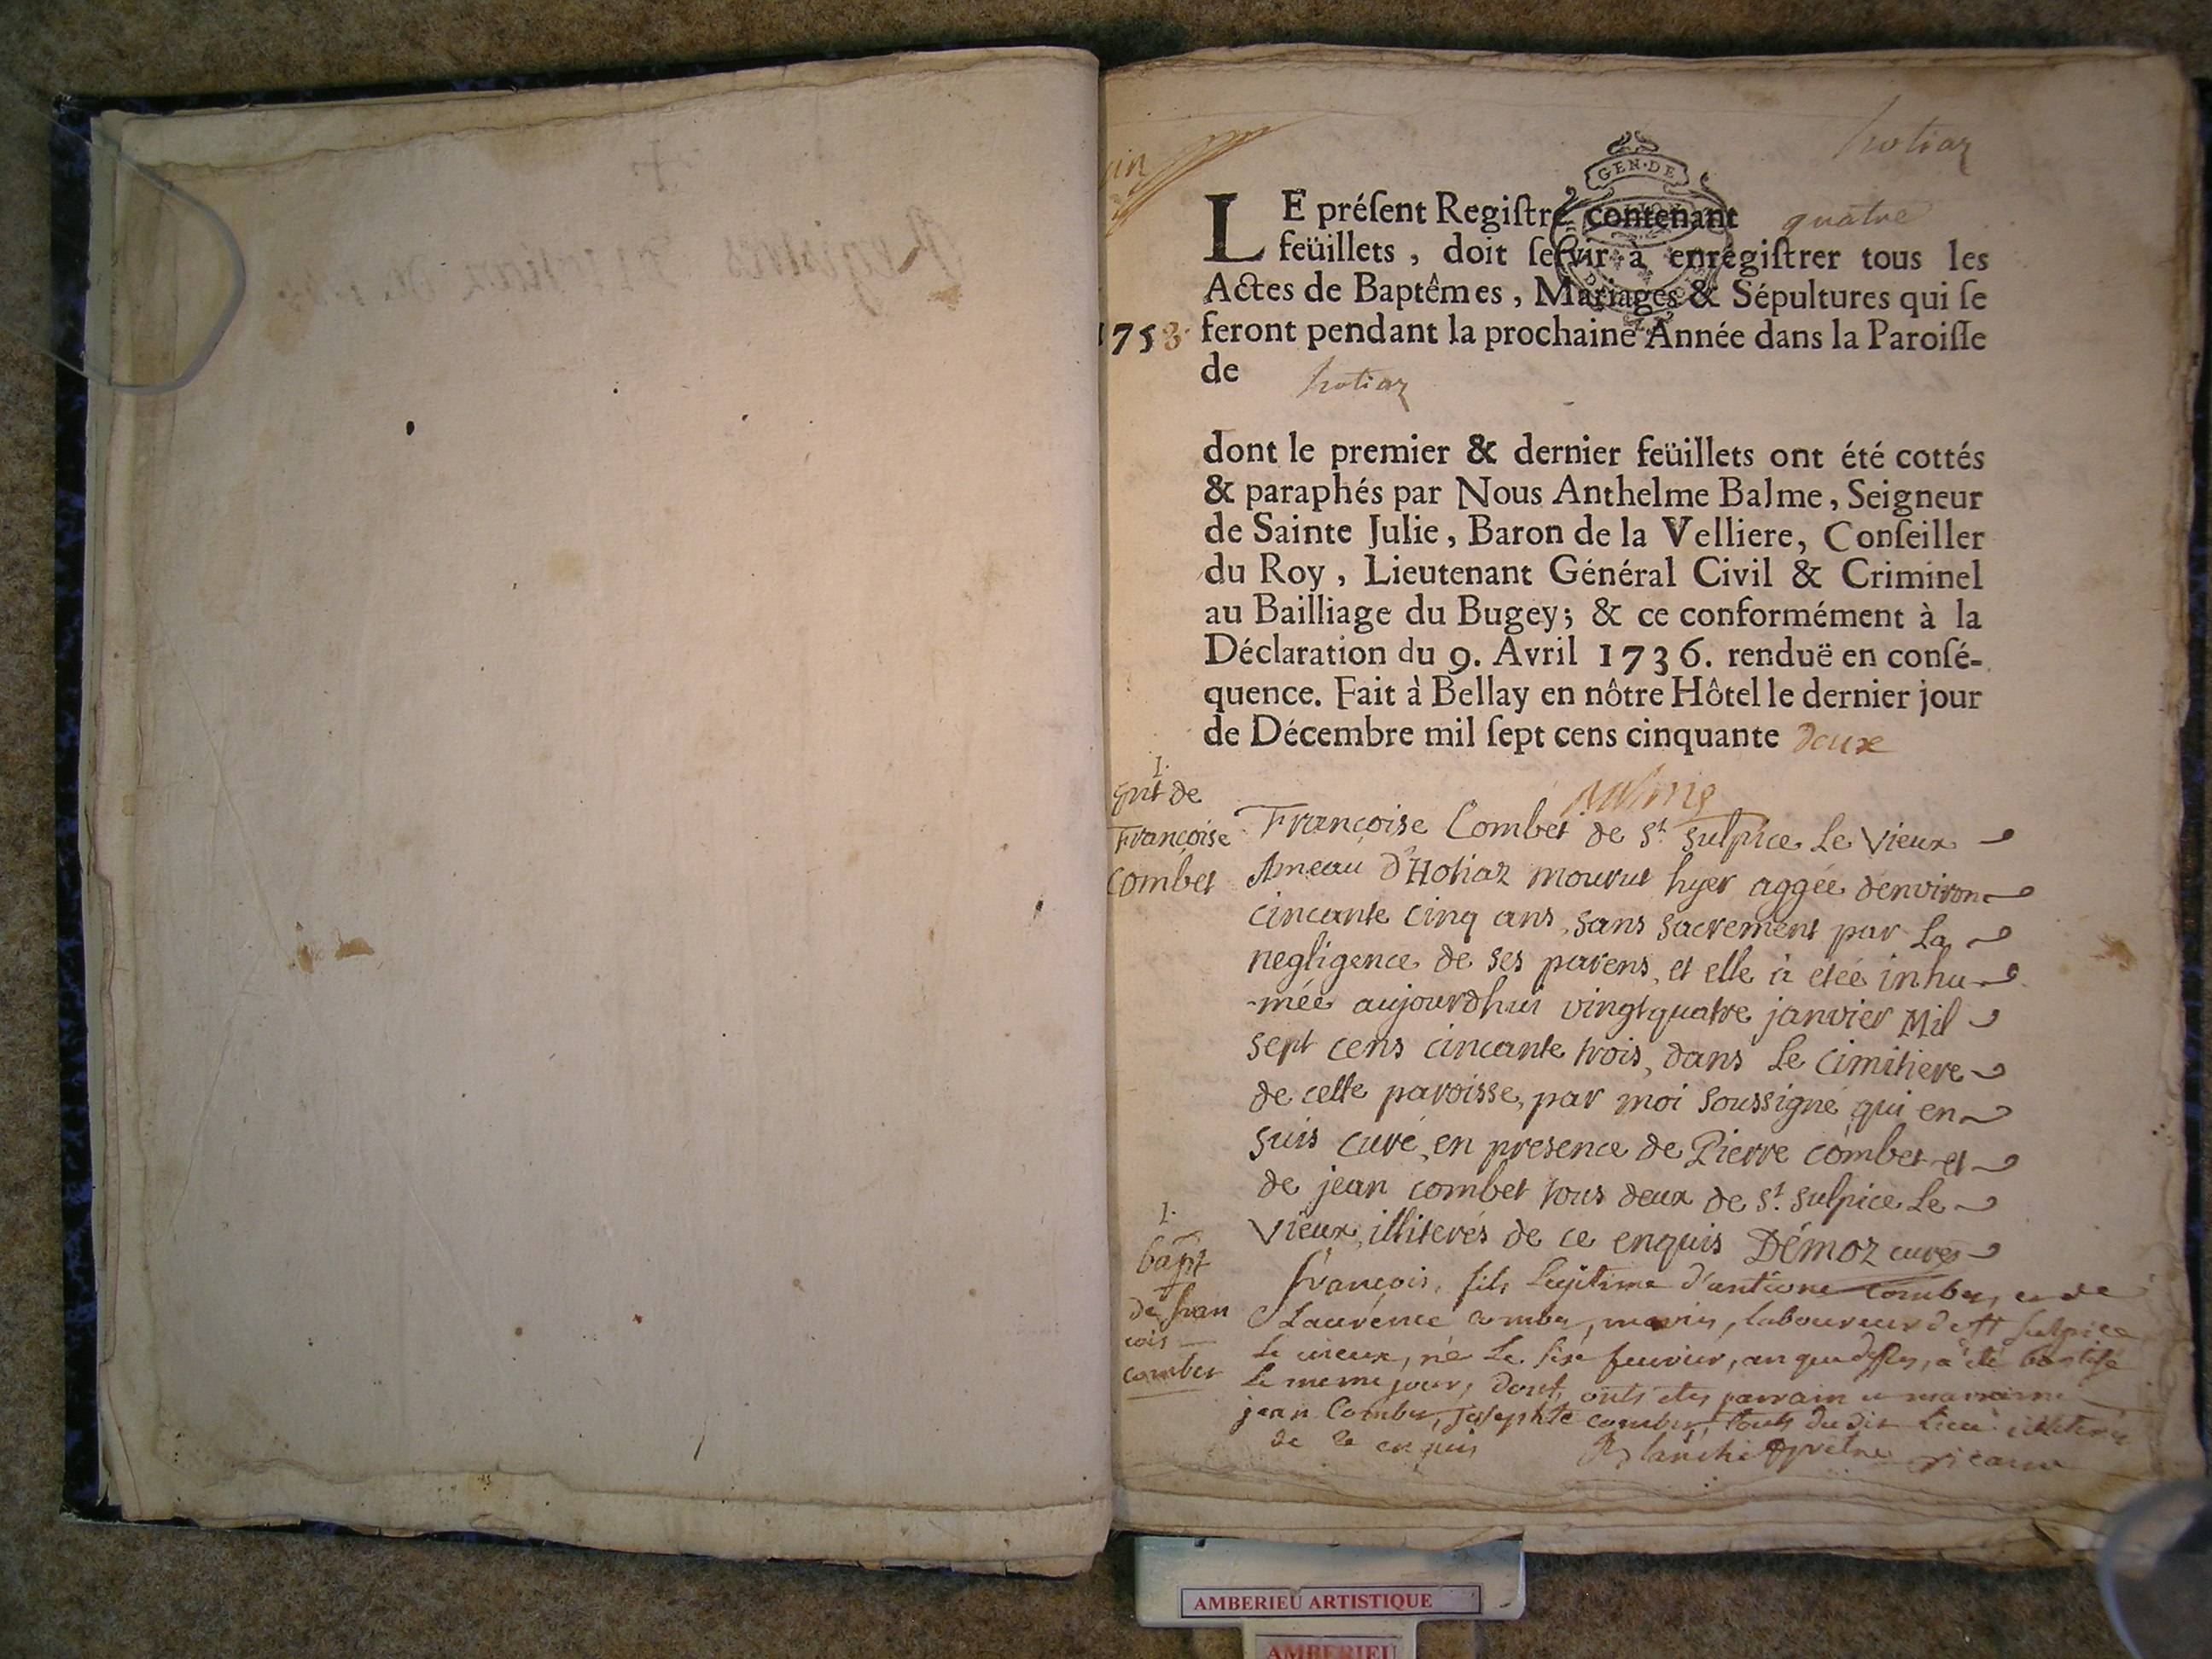 hotiaz
GEN·DE
LE préſent Regiſtre contenant quatre
feüillets, doit ſervir à enrégiſtrer tous les
Actes de Baptêmes, Mariages & Sépultures qui ſe
1753 feront pendant la prochaine Année dans la Paroiſſe
de hotiaz
dont le premier & dernier feüillets ont été cottés
& paraphés par Nous Anthelme Balme, Seigneur
de Sainte Julie, Baron de la Velliere, Conſeiller
du Roy, Lieutenant Général Civil & Criminel
au Bailliage du Bugey; & ce conformément à la
Déclaration du 9. Avril 1736. renduë en conſé-
quence. Fait à Bellay en nôtre Hôtel le dernier jour
de Décembre mil ſept cens cinquante deux
Balme
1.
de
Françoise
Combet
Françoise Combet de St. Sulpice Le Vieux
Ameau d'Hotiaz mourut hyer aggée d'environ
cincante cinq ans, sans sacrement par La
negligence de ses parens, et elle à etéé inhu-
-mée aujourdhui vingtquatre janvier Mil
sept cens cincante trois, dans Le Cimitiere
de cette paroisse, par moi soussigné qui en
suis curé, en presence de Pierre combet et
de jean combet tous deux de St. Sulpice Le
Vieux, illiterés de ce enquis Démoz curé
1.
bapt
de fran
cois
combet
françois, fils Legitime d'antoine combet, et de
Laurence combet, mariés, laboureur de St Sulpice
le vieux, né Le six feuvrier, an que dessus, a été batisé
Le meme jour, dont onts étés parrain et marraine
jean Combet, Josephte combet, touts du dit Lieu illiterés
de ce enquis Blanchet prêtre vicaire
AMBERIEU ARTISTIQUE
AMBERIEU